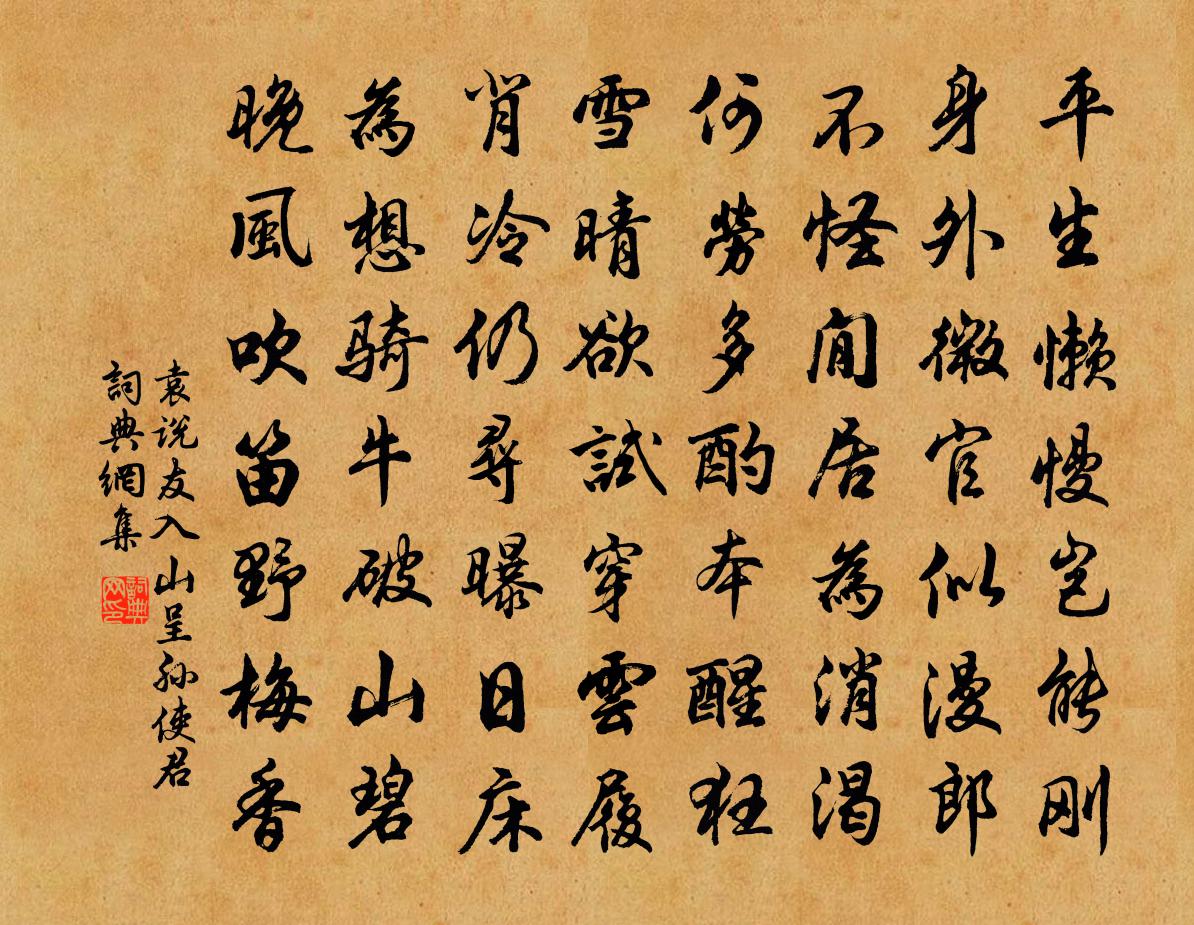 平生懶慢豈能剛
身外微官似漫郎
不怪閒居為消渴
何勞多酌本醒狂
雪晴欲試穿雲履
背冷仍尋曝日床
為想騎牛破山碧
晚風吹笛野梅香
袁說友入山呈孫使君
詞典網集
詞典網印